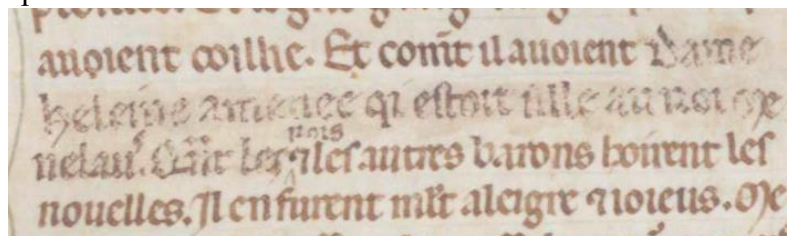 auoient coillie. Et com̄t il auoient dame
heleine amenee qi estoit fille au roi me
nelau᷒. Qn̄t les rois ⁊ les autres barons hoirent les
nouelles. Il en furent ml̄t aleigre ⁊ ioieus. Me